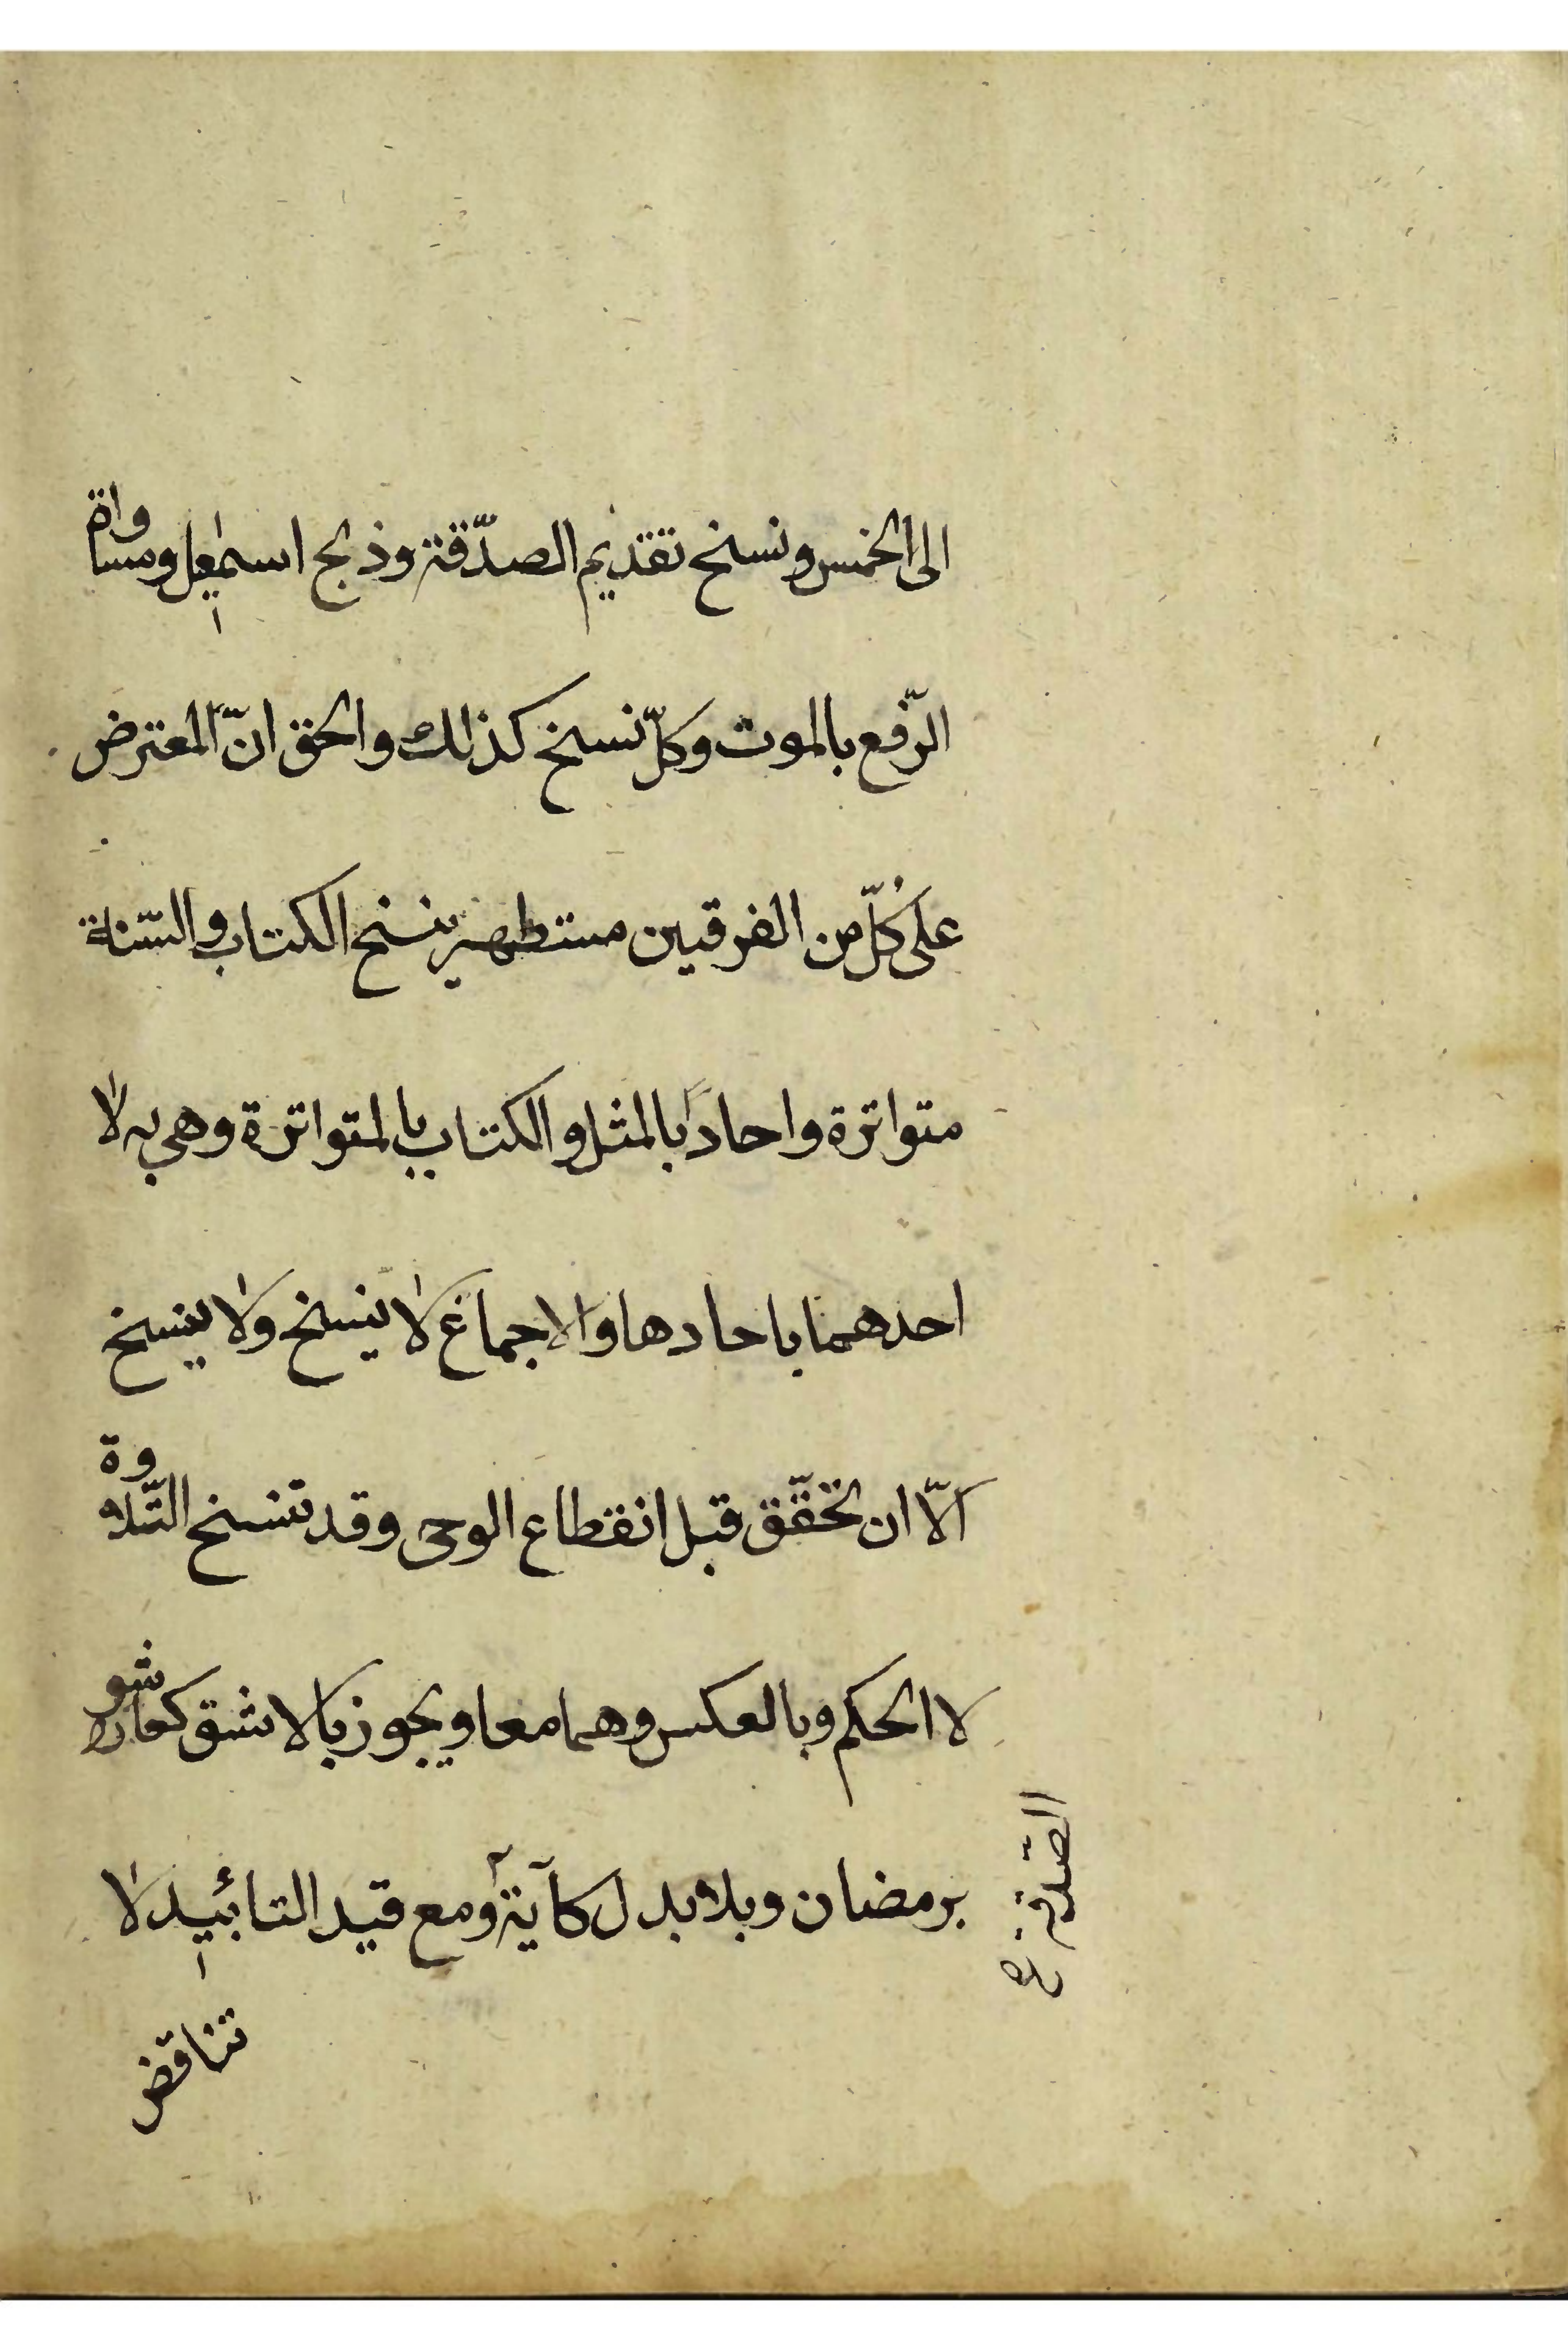 الى الخمس ونسخ تقديم الصدّقة وذبح اسمٰعيل ومساواة
الرّفع بالموت وكلّ نسخ كذلك والحق انّ المعترض
على كُلّ من الفرقين مستظهر ينسخ الكتاب والسّنة
متواترة واحاداً بالمثل والكتاب بالمتواترة وهي به لا
احدهما باحادها والاجماع لا ينسخ ولا ينسخ
الّا ان تحقّق قبل انقطاع الوحى وقد تنسخ التّلاوة
لا الحكم وبالعكس وهما معا ويجوز بالاشق كعاشورا
برمضان وبلا بدل كآية ومع قيد التابئيد لا
الصّدقة
تناقض